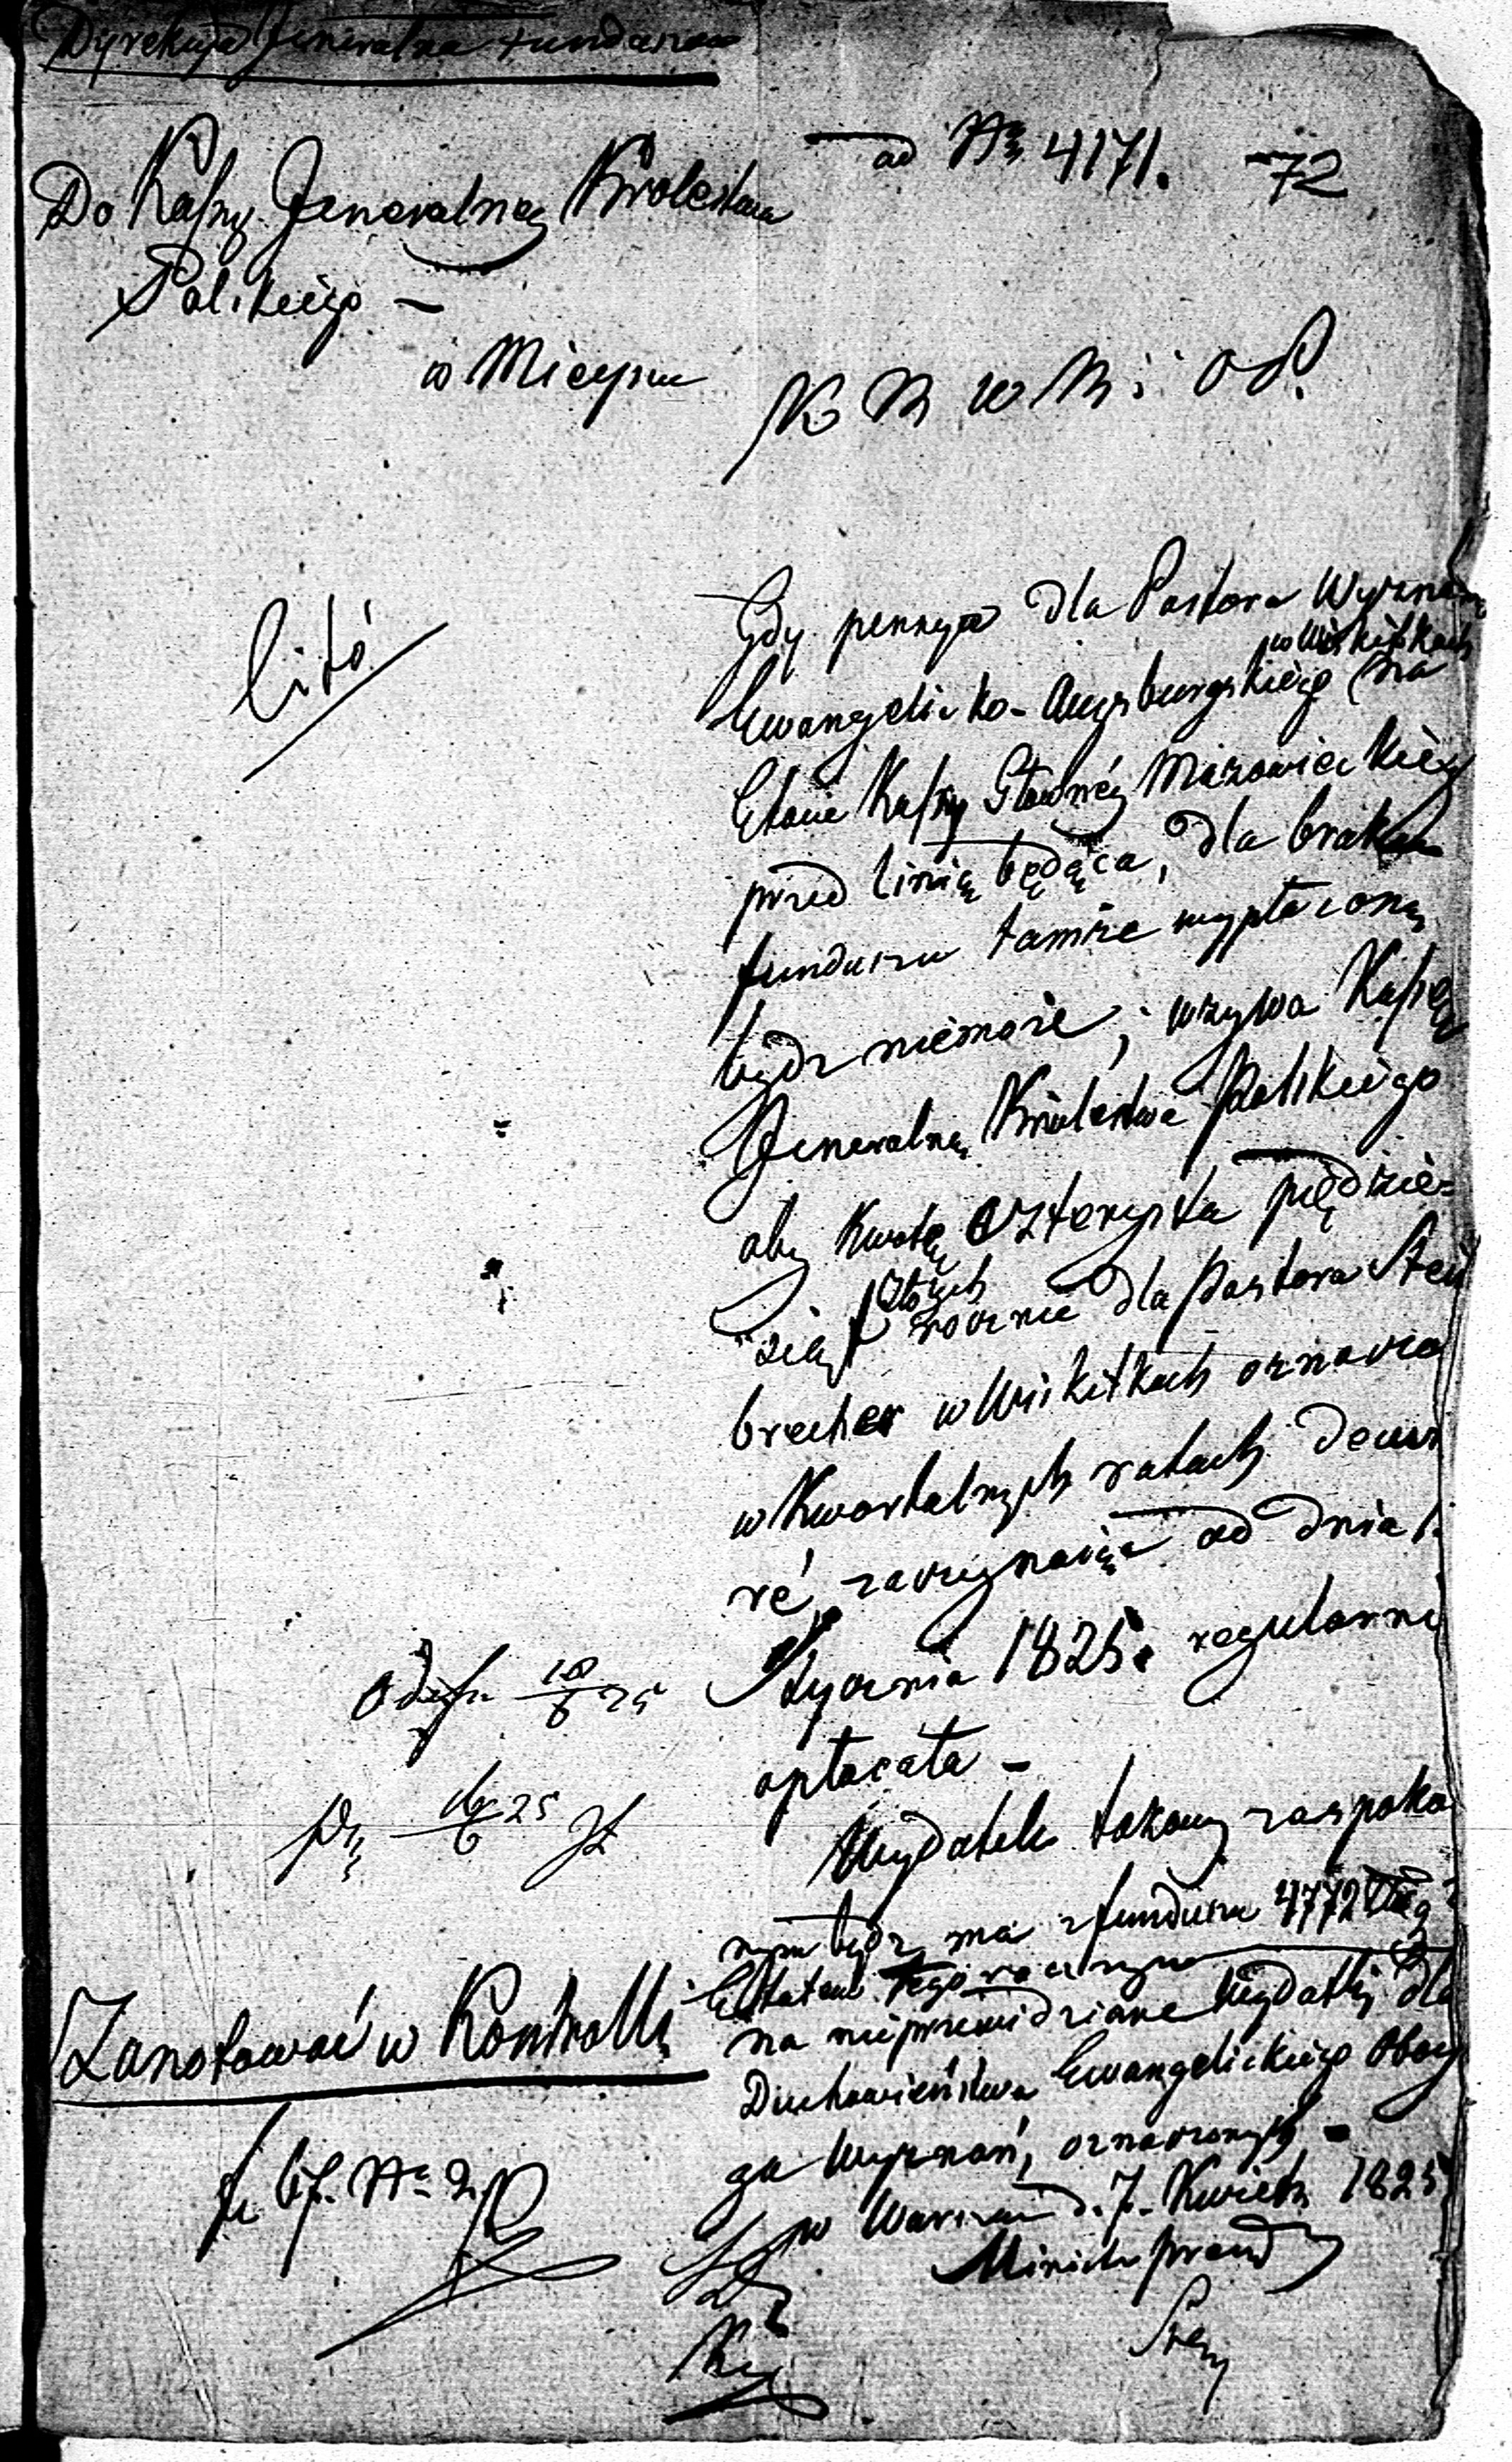 Dyrekcya Jeneralna Funduszów
ad Nº 4171. 72
Do Kassy Jeneralney Królestwa
Polskiego –
w Mieyscu
K R W R i O P.
Cito
Gdy pensya dla Pastora Wyznan
w Wiskitkach
Ewangelicko-Augsburgskiego na
Etacie Kassy Głównéy Mazowieckiéy
przed linią będąca, dla braku
funduszu tamże wypłaconą
bydz niemoże; wzywa Kassę
Jeneralną Królestwa Polskiego
aby kwotę czterysta pięćdzie-
złotych
siąt rocznie dla Pastora Stein
brecher w Wiskitkach oznaczo
w kwartalnych ratach decur
ré, zaczynaiąc od dnia 1.
Stycznia 1825. regularni
opłacała –
Wydatek takowy zaspoko
ionym bydz ma z funduszu 4772
Etatem tegorocznym
na nieprzewidziane wydatki dla
Duchowieństwa Ewangelickiego oboy
ga wyznań, oznaczonych –
w Warszawie d. 7. Kwietn 1825
Minister Prezyd
Zanotować w Kontrolli